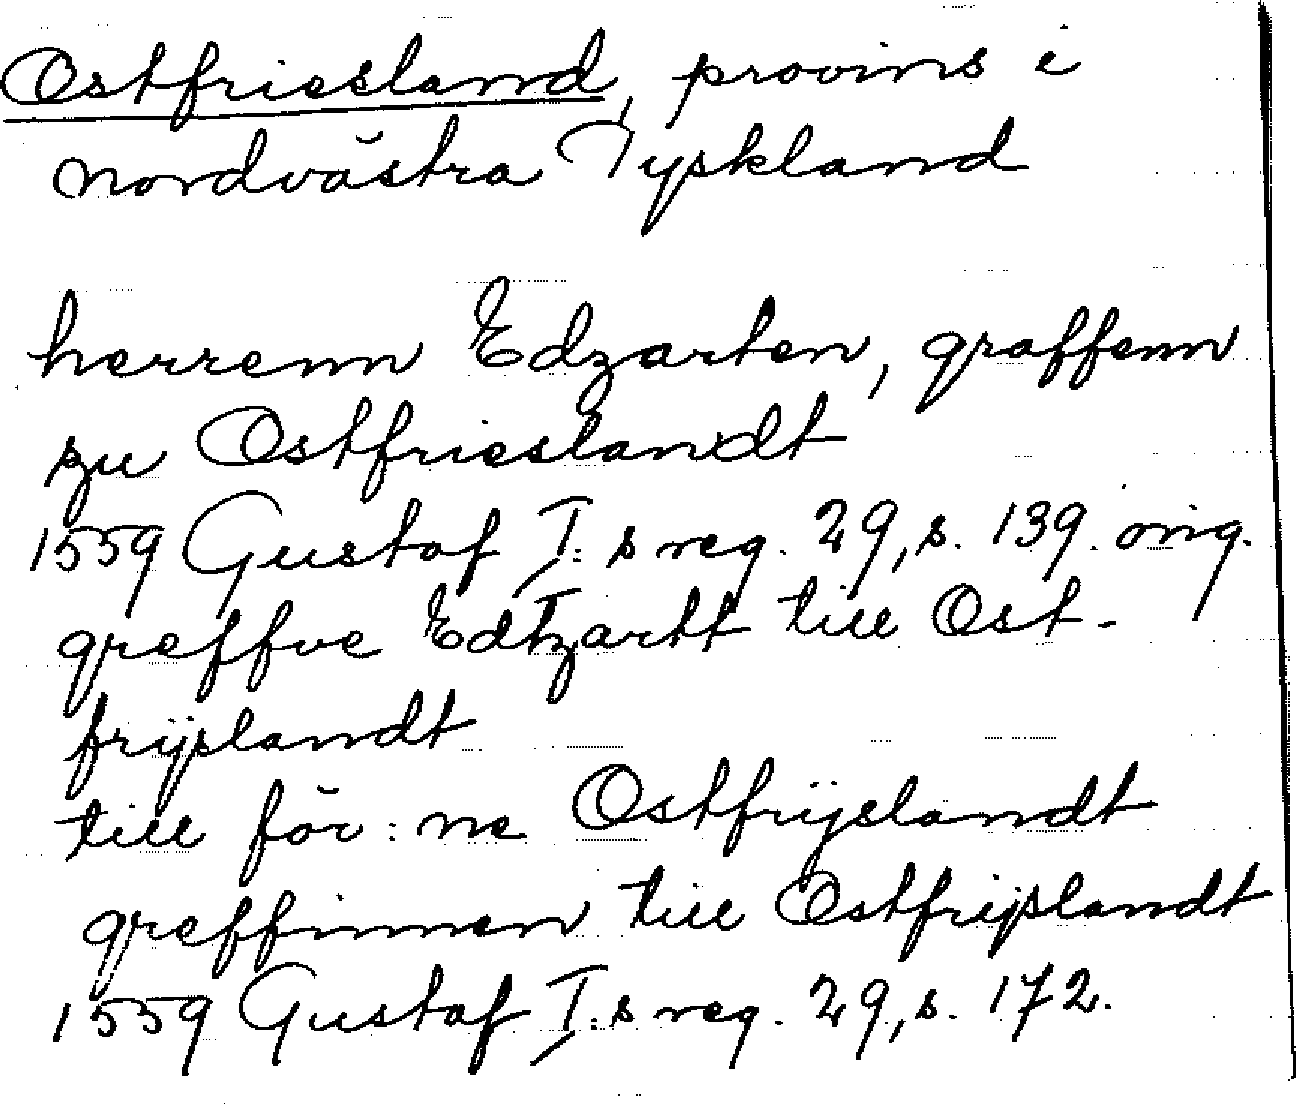 Ostfriesland, provins i
nordvästra Tyskland
herrenn Edzarten, graffenn
zu Ostfrieslandt
1559 Gustaf I:s reg. 29, s. 139. orig.
greffve Edtzartt till Ost-
frijslandt
till för:ne Ostfrÿslandt
greffinnen till Ostfrijslandt
1559 Gustaf I:s reg. 29, s. 172.